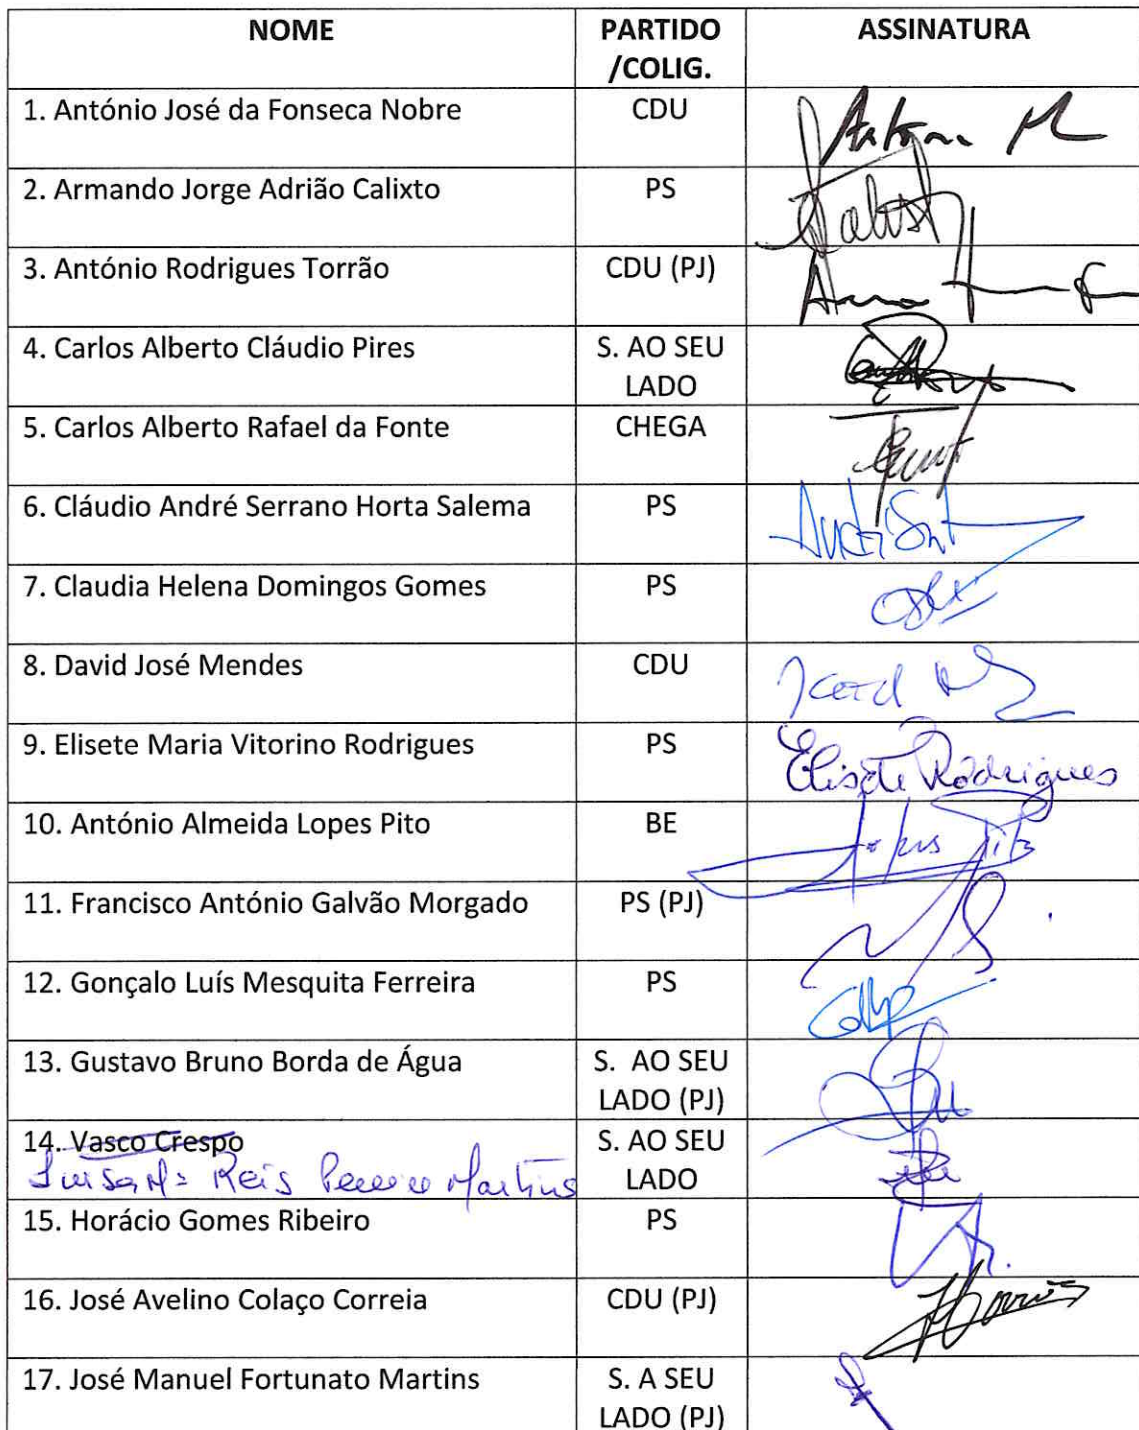 NOME PARTIDO ASSINATURA
/COLIG.
1. António José da Fonseca Nobre CDU
2. Armando Jorge Adrião Calixto PS
3. António Rodrigues Torrão CDU (PJ)
4. Carlos Alberto Cláudio Pires S. AO SEU
LADO
5. Carlos Alberto Rafael da Fonte CHEGA
6. Cláudio André Serrano Horta Salema PS
7. Claudia Helena Domingos Gomes PS
8. David José Mendes CDU
9. Elisete Maria Vitorino Rodrigues PS Elisete Rodrigues
10. António Almeida Lopes Pito BE
11. Francisco António Galvão Morgado PS (PJ)
12. Gonçalo Luís Mesquita Ferreira PS
13. Gustavo Bruno Borda de Água S. AO SEU
LADO (PJ)
14. Vasco Crespo S. AO SEU
Reis Martins LADO
15. Horácio Gomes Ribeiro PS
16. José Avelino Colaço Correia CDU (PJ)
17. José Manuel Fortunato Martins S. A SEU
LADO (PJ)